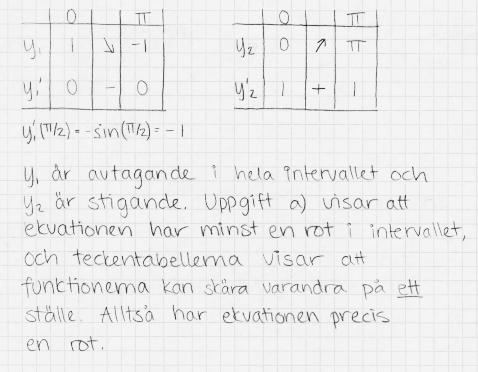 0 π 0 π
y₁ 1 ↘ -1 y₂ 0 ↗ π
y₁' 0 - 0 y₂' 1 + 1
y₁'(π/2) = -sin(π/2) = -1
y₁ är avtagande i hela intervallet och
y₂ är stigande. Uppgift a) visar att
ekvationen har minst en rot i intervallet,
och teckentabellerna visar att
funktionerna kan skära varandra på ett
ställe. Alltså har ekvationen precis
en rot.